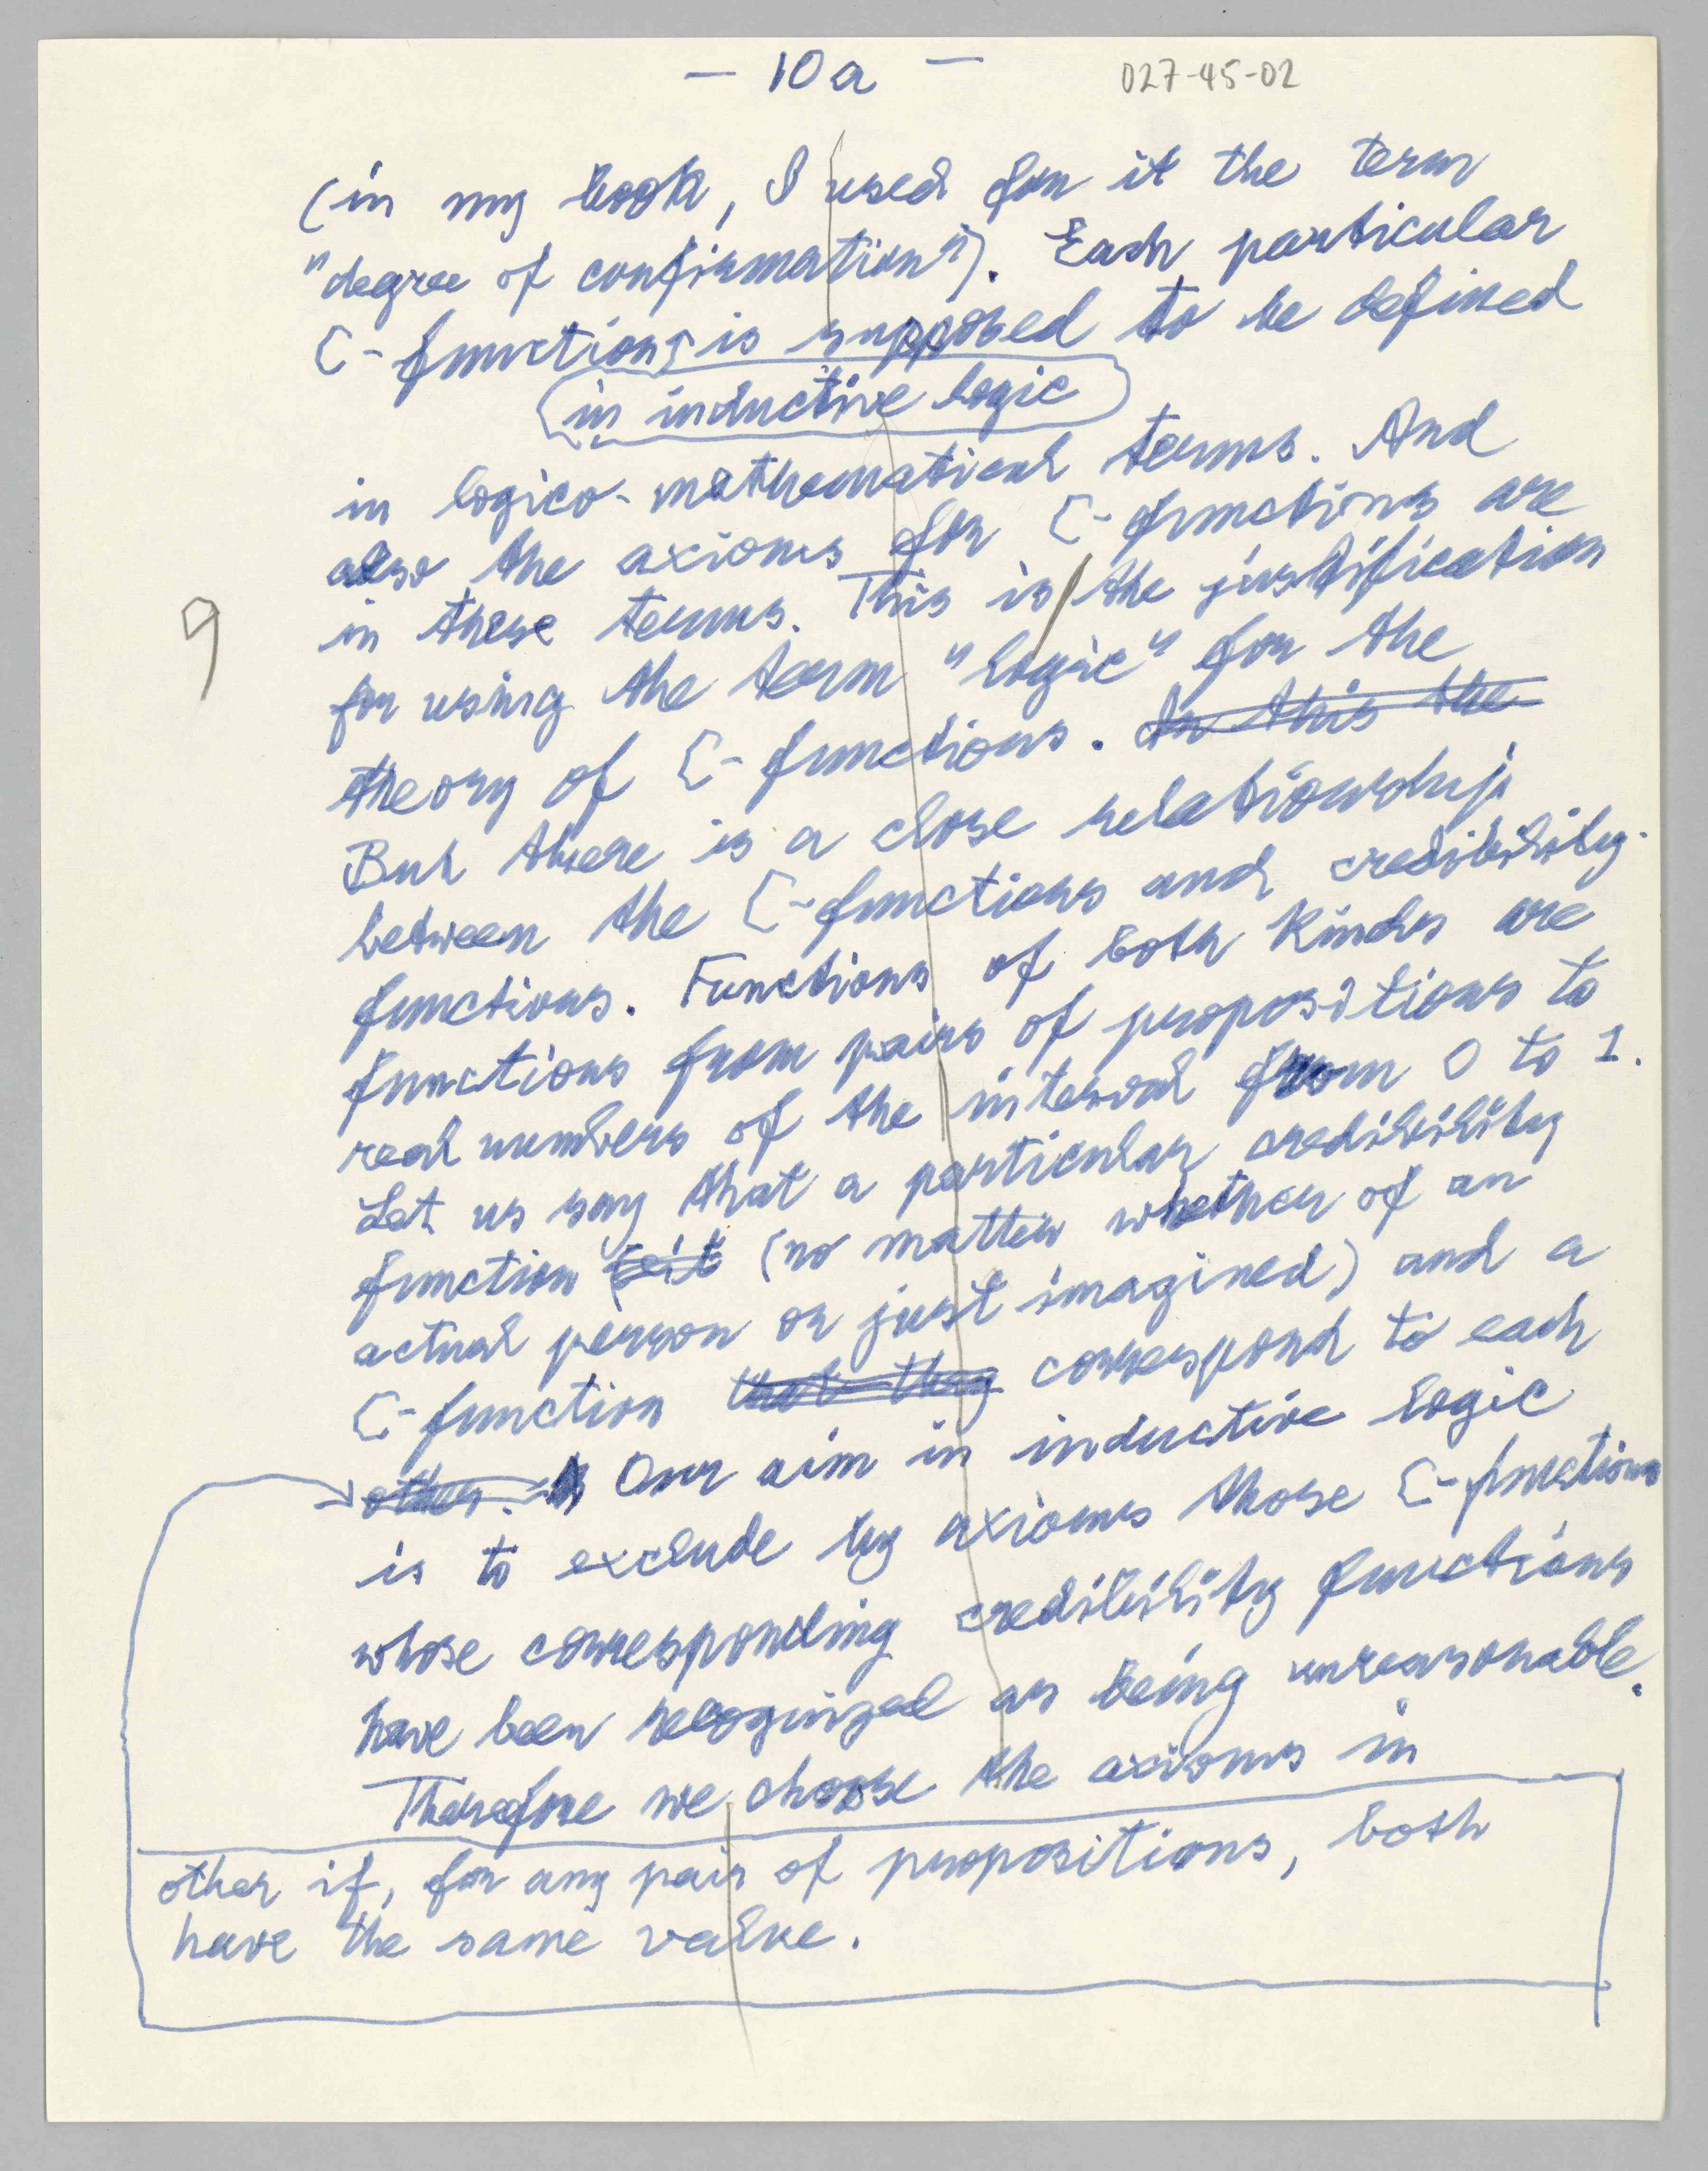 — 10a —
027-45-02
(in my book, I used for it the term
"degree of confirmation"). Each particular
C-function is supposed to be defined
in inductive logic
in logico-mathematical terms. And
also the axioms for C-functions are
in these terms. This is the justification
9
for using the term "logic" for the
theory of C-functions. In this the
But there is a close relationship
between the C-functions and credibility-
functions. Functions of both kinds are
functions from pairs of propositions to
real numbers of the interval from 0 to 1.
Let us say that a particular credibility
function (no matter whether of an
actual person or just imagined) and a
C-function that they correspond to each
other. Our aim in inductive logic
is to exclude by axioms those C-functions
whose corresponding credibility functions
have been recognized as being unreasonable.
Therefore we choose the axioms in
other if, for any pair of propositions, both
have the same value.